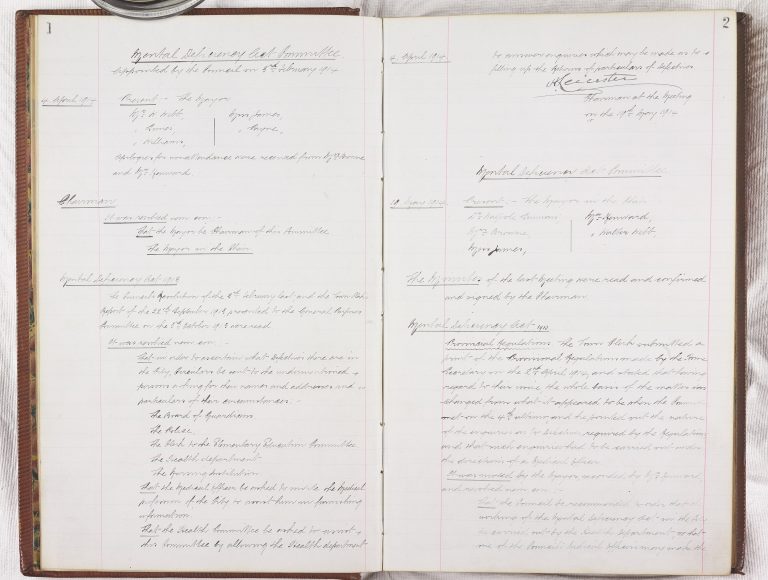 1
Mental Deficiency Act Committee
Appointed by the Council on 5th February 1914
4 April 1914
Present :- The Mayor
Mr. W Webb, Messrs James,
" Payne,
" Williams,
Apologies for nonattendance were received from Mrs Browne
and Mr. Kenward.
Chairman
It was resolved nem con :-
That the Mayor be Chairman of this Committee
The Mayor in the Chair
Mental Deficiency Act 1913
The Council's Resolution of the 5th February last and the Town Clerk's
Report of the 22nd September 1913 presented to the General Purposes
Committee on the 3rd October 1913 were read
It was resolved nem con :-
That in order to ascertain what Defectives there are in
the City, Circulars be sent to the undermentioned
persons asking for their names and addresses and
particulars of their circumstances :-
The Board of Guardians
The Police
The Clerk to the Elementary Education Committee
The Health department
The Nursing Institution
That the Medical Officer be asked to invite the Medical
profession of the City to assist him in furnishing
information
That the Health Committee be asked to assist
this Committee by allowing the Health department
2
4 April 1914
to answer enquiries which may be made as to
filling up the Returns of particulars of defectives
Chairman at the Meeting
on the 19th May 1914
Mental Deficiency Act Committee
19 May 1914
Present :- The Mayor in the Chair
Mrs Browne Mr. Kenward,
" Walter Webb,
Messrs James,
The Minutes of the last Meeting were read and confirmed
and signed by the Chairman
Mental Deficiency Act 1913
Provisional Regulations. The Town Clerk submitted a
print of the Provisional Regulations made by the Home
Secretary on the 2nd April 1914, and stated that having
regard to their issue the whole basis of the matter was
changed from what it appeared to be when the Committee
met on the 4th ultimo and he pointed out the nature
of the enquiries as to Defectives required by the Regulations
and that such enquiries had to be carried out under
the direction of a Medical Officer
It was moved by the Mayor seconded by Mr. Kenward,
and resolved nem con :-
That the Council be recommended to order that the
working of the Mental Deficiency Act in the City
be carried out by the Health Department, so that
one of the Council's Medical Officers may make the